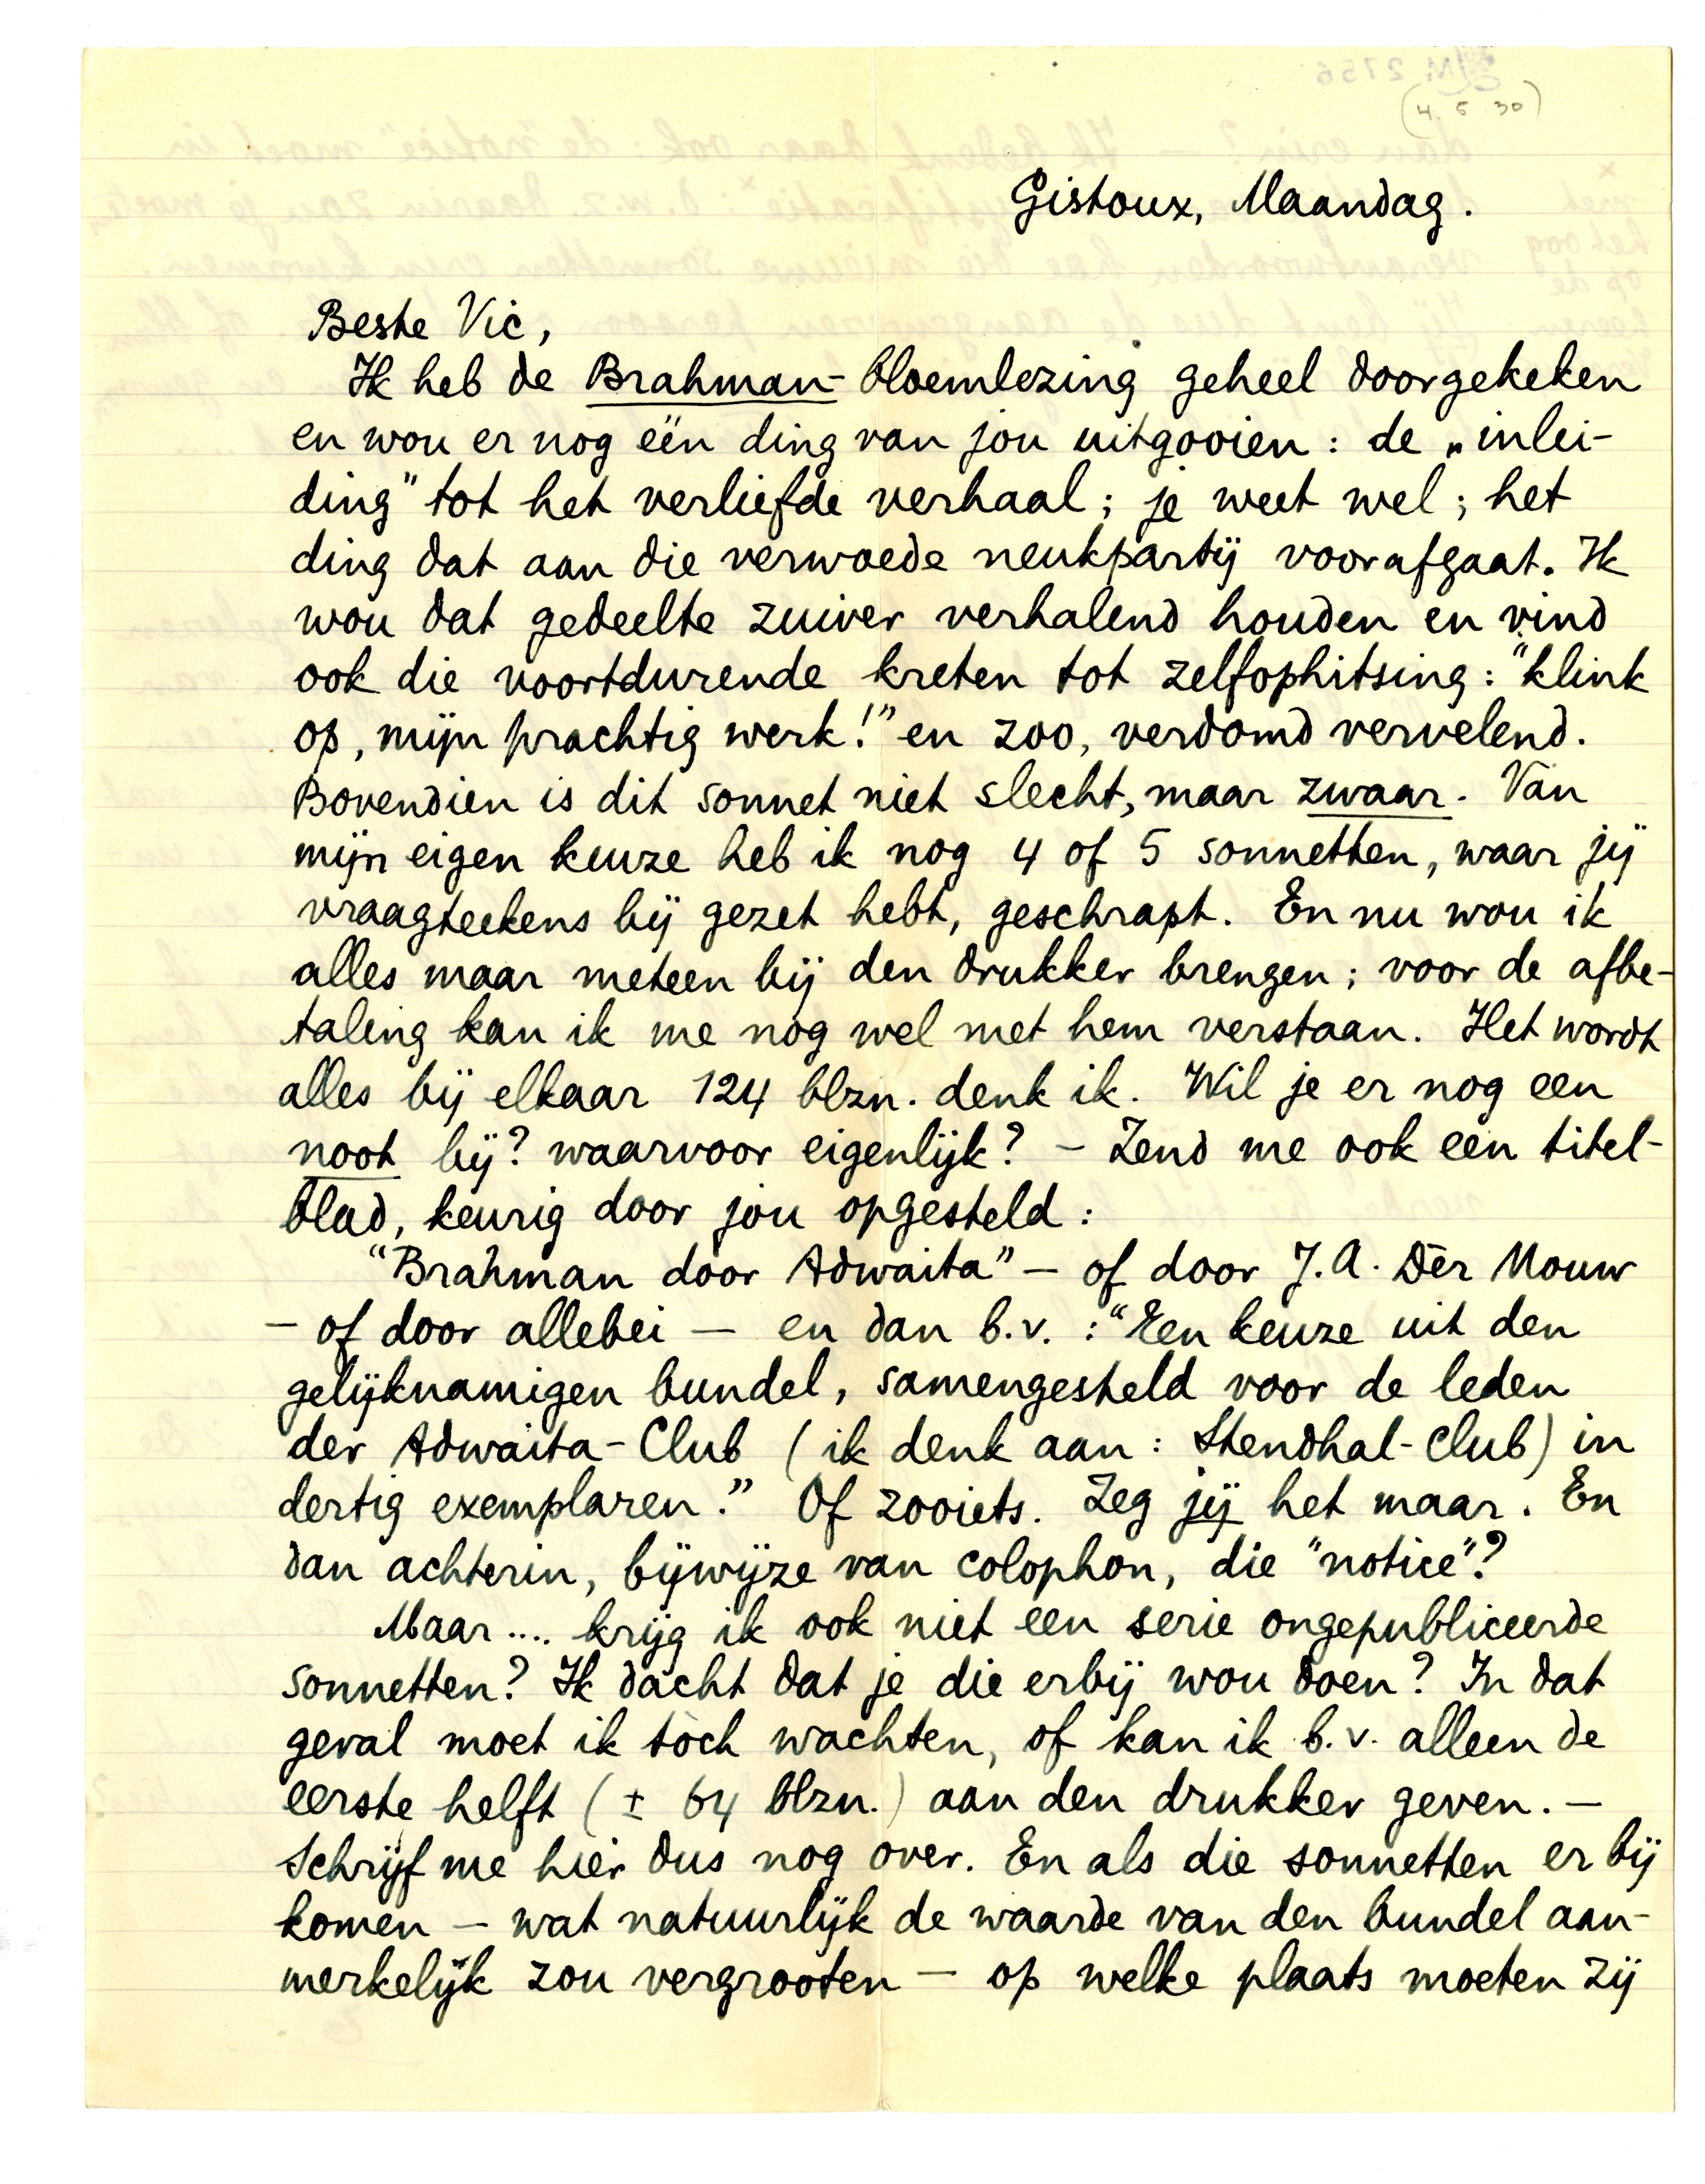 (4. 5 30)
Gistoux, Maandag.
Beste Vic,
Ik heb de Brahman-bloemlezing geheel doorgekeken
en wou er nog één ding van jou uitgooien: de „inlei-
ding" tot het verliefde verhaal; je weet wel; het
ding dat aan die verwoede neukpartij voorafgaat. Ik
wou dat gedeelte zuiver verhalend houden en vind
ook die voortdurende kreten tot zelfophitsing: "klink
op, mijn prachtig werk!" en zoo, verdomd vervelend.
Bovendien is dit sonnet niet slecht, maar zwaar. Van
mijn eigen keuze heb ik nog 4 of 5 sonnetten, waar jij
vraagteekens bij gezet hebt, geschrapt. En nu wou ik
alles maar meteen bij den drukker brengen; voor de afbe-
taling kan ik me nog wel met hem verstaan. Het wordt
alles bij elkaar 124 blzn. denk ik. Wil je er nog een
noot bij? waarvoor eigenlijk? – Zend me ook een titel-
blad, keurig door jou opgesteld:
"Brahman door Adwaita" – of door J.A. Dèr Mouw
– of door allebei – en dan b.v.: "Een keuze uit den
gelijknamigen bundel, samengesteld voor de leden
der Adwaita-Club (ik denk aan: Stendhal-Club) in
dertig exemplaren." Of zooiets. Zeg jij het maar. En
dan achterin, bijwijze van colophon, die "notice"?
Maar.... krijg ik ook niet een serie ongepubliceerde
sonnetten? Ik dacht dat je die erbij wou doen? In dat
geval moet ik tòch wachten, of kan ik b.v. alleen de
eerste helft (± 64 blzn.) aan den drukker geven. –
Schrijf me hier dus nog over. En als die sonnetten er bij
komen – wat natuurlijk de waarde van den bundel aan-
merkelijk zou vergrooten – op welke plaats moeten zij